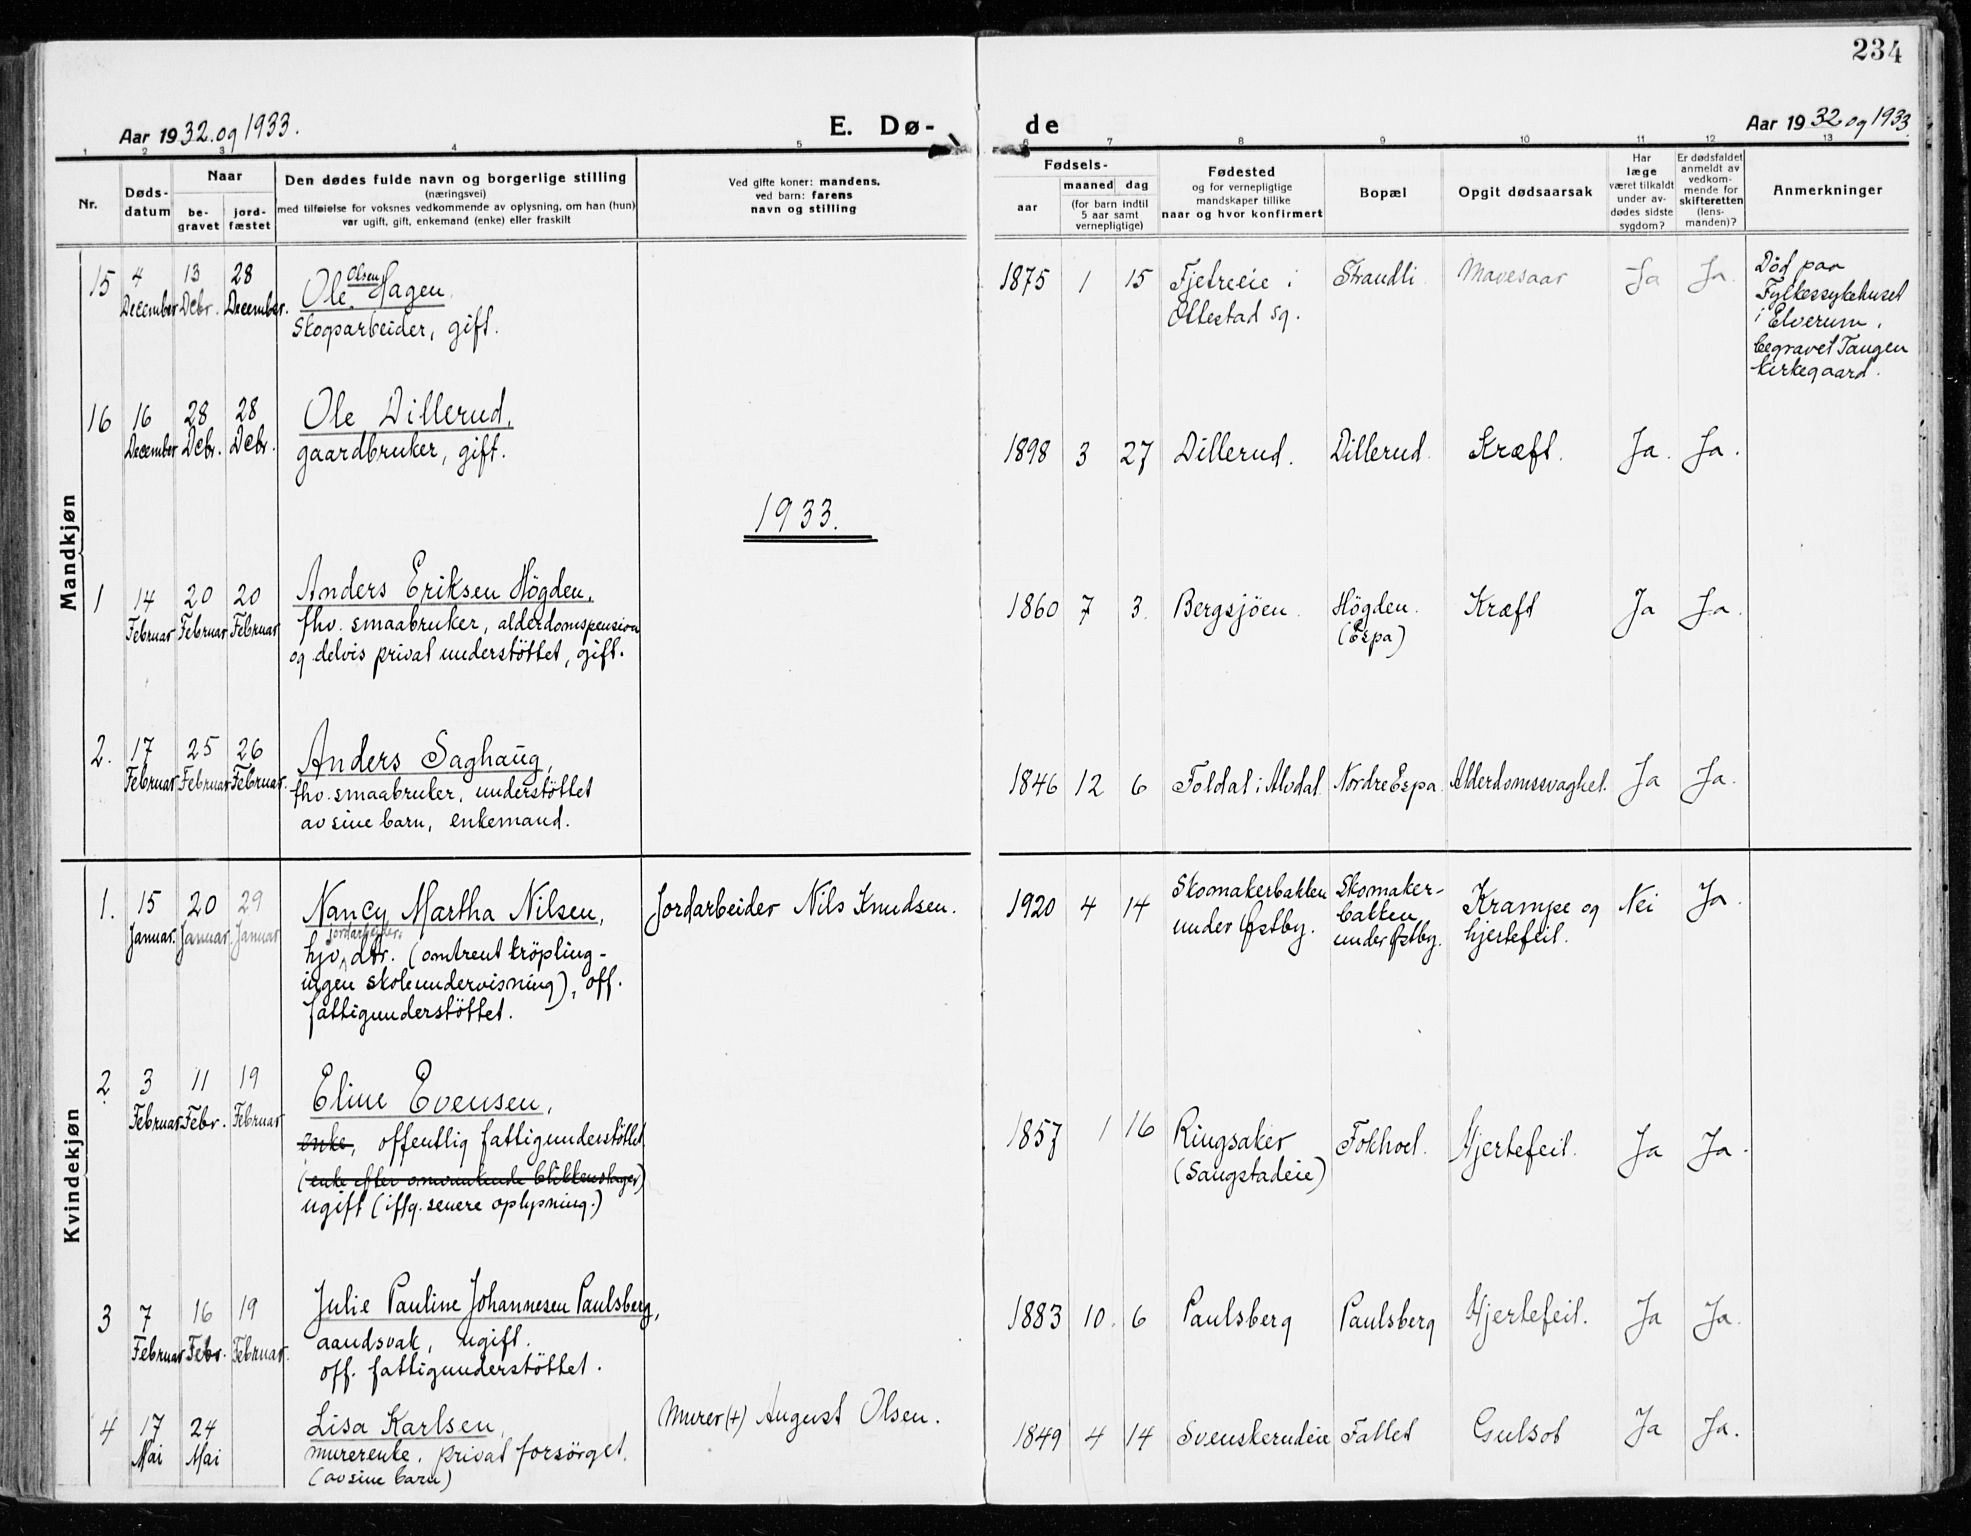 234
Aar 1932. og 1933.
E. Dø-
de
Aar 1932 og 1933.
1 2 3 4 5 6 7 8 9 10 11 12 13
Nr.
Døds-
datum
Naar
be-
gravet
jord-
fæstet
Den dødes fulde navn og borgerlige stilling
(næringsvei)
med tilføielse for voksnes vedkommende av oplysning, om han (hun)
var ugift, gift, enkemand (enke) eller fraskilt
Ved gifte koner: mandens,
ved barn: farens
navn og stilling
Fødsels-
aar
maaned dag
(for barn indtil
5 aar samt
vernepligtige)
Fødested
og for vernepligtige
mandskaper tillike
naar og hvor konfirmert
Bopæl
Opgit dødsaarsak
Har
læge
været tilkaldt
under av-
dødes sidste
sygdom?
Er dødsfaldet
anmeldt av
vedkom-
mende for
skifteretten
(lens-
manden)?
Anmerkninger
Mandkjøn
15
4
December
13
Debr.
28
December.
Ole Olsen Hagen
Skogsarbeider, gift.
1875 1 15
Fjetreeie i
Ottestad sg.
Strandli
Mavesaar
Ja Ja.
Død paa
Fylkessykehuset
i Elverum,
begravet Tangen
kirkegaard.
16
16
December
28
Debr.
28
Debr.
Ole Dillerud,
gaardbruker, gift.
1898 3 27 Dillerud. Dillerud. Kræft. Ja. Ja.
1933.
1
14
Februar
20
Februar
20
Februar
Anders Eriksen Högden,
fhv. smaabruker, alderdomspension
og delvis privat understöttet, gift.
1860 7 3. Bergsjöen.
Högden.
(Espa)
Kræft Ja Ja.
2.
17
Februar
25
Februar
26
Februar.
Anders Saghaug,
fhv. smaabruker, understöttet
av sine barn, enkemand.
1846 12 6 Foldal i Alvdal. Nordre Espa. Alderdomssvaghet. Ja Ja.
Kvindekjøn
1.
15
Januar.
20
Januar.
29
Januar
Nancy Martha Nilsen,
jordarbeider.
hjv. dtr. (omtrent kröpling-
ingen skoleundervisning), off.
fattigunderstöttet.
Jordarbeider Nils Knudsen.
1920 4 14
Skomakerbakken
under Østby.
Skomaker-
bakken
under Østby.
Krampe og
hjertefeil.
Nei Ja.
2.
3
Februar
11
Febr.
19
Februar
Eline Evensen,
enke, offentlig fattigunderstöttet
(enke efter omvankende blikkenslager)
ugift (iflg. senere oplysning.)
1857 1 16
Ringsaker
(Sangstadeie)
Fokhol. Hjertefeil. Ja Ja.
3
7
Februar
16
Febr.
19
Februar.
Julie Pauline Johannesen Paulsberg,
aandsvak, ugift.
off. fattigunderstöttet.
1883 10. 6 Paulsberg Paulsberg Hjertefeil. Ja Ja.
4
17
Mai
24
Mai
Lisa Karlsen,
murerenke, privat forsörget.
(av sine barn)
Murer (+) August Olsen.
1849 4 14 Svenskerudeie Fallet Gulsot Ja Ja.